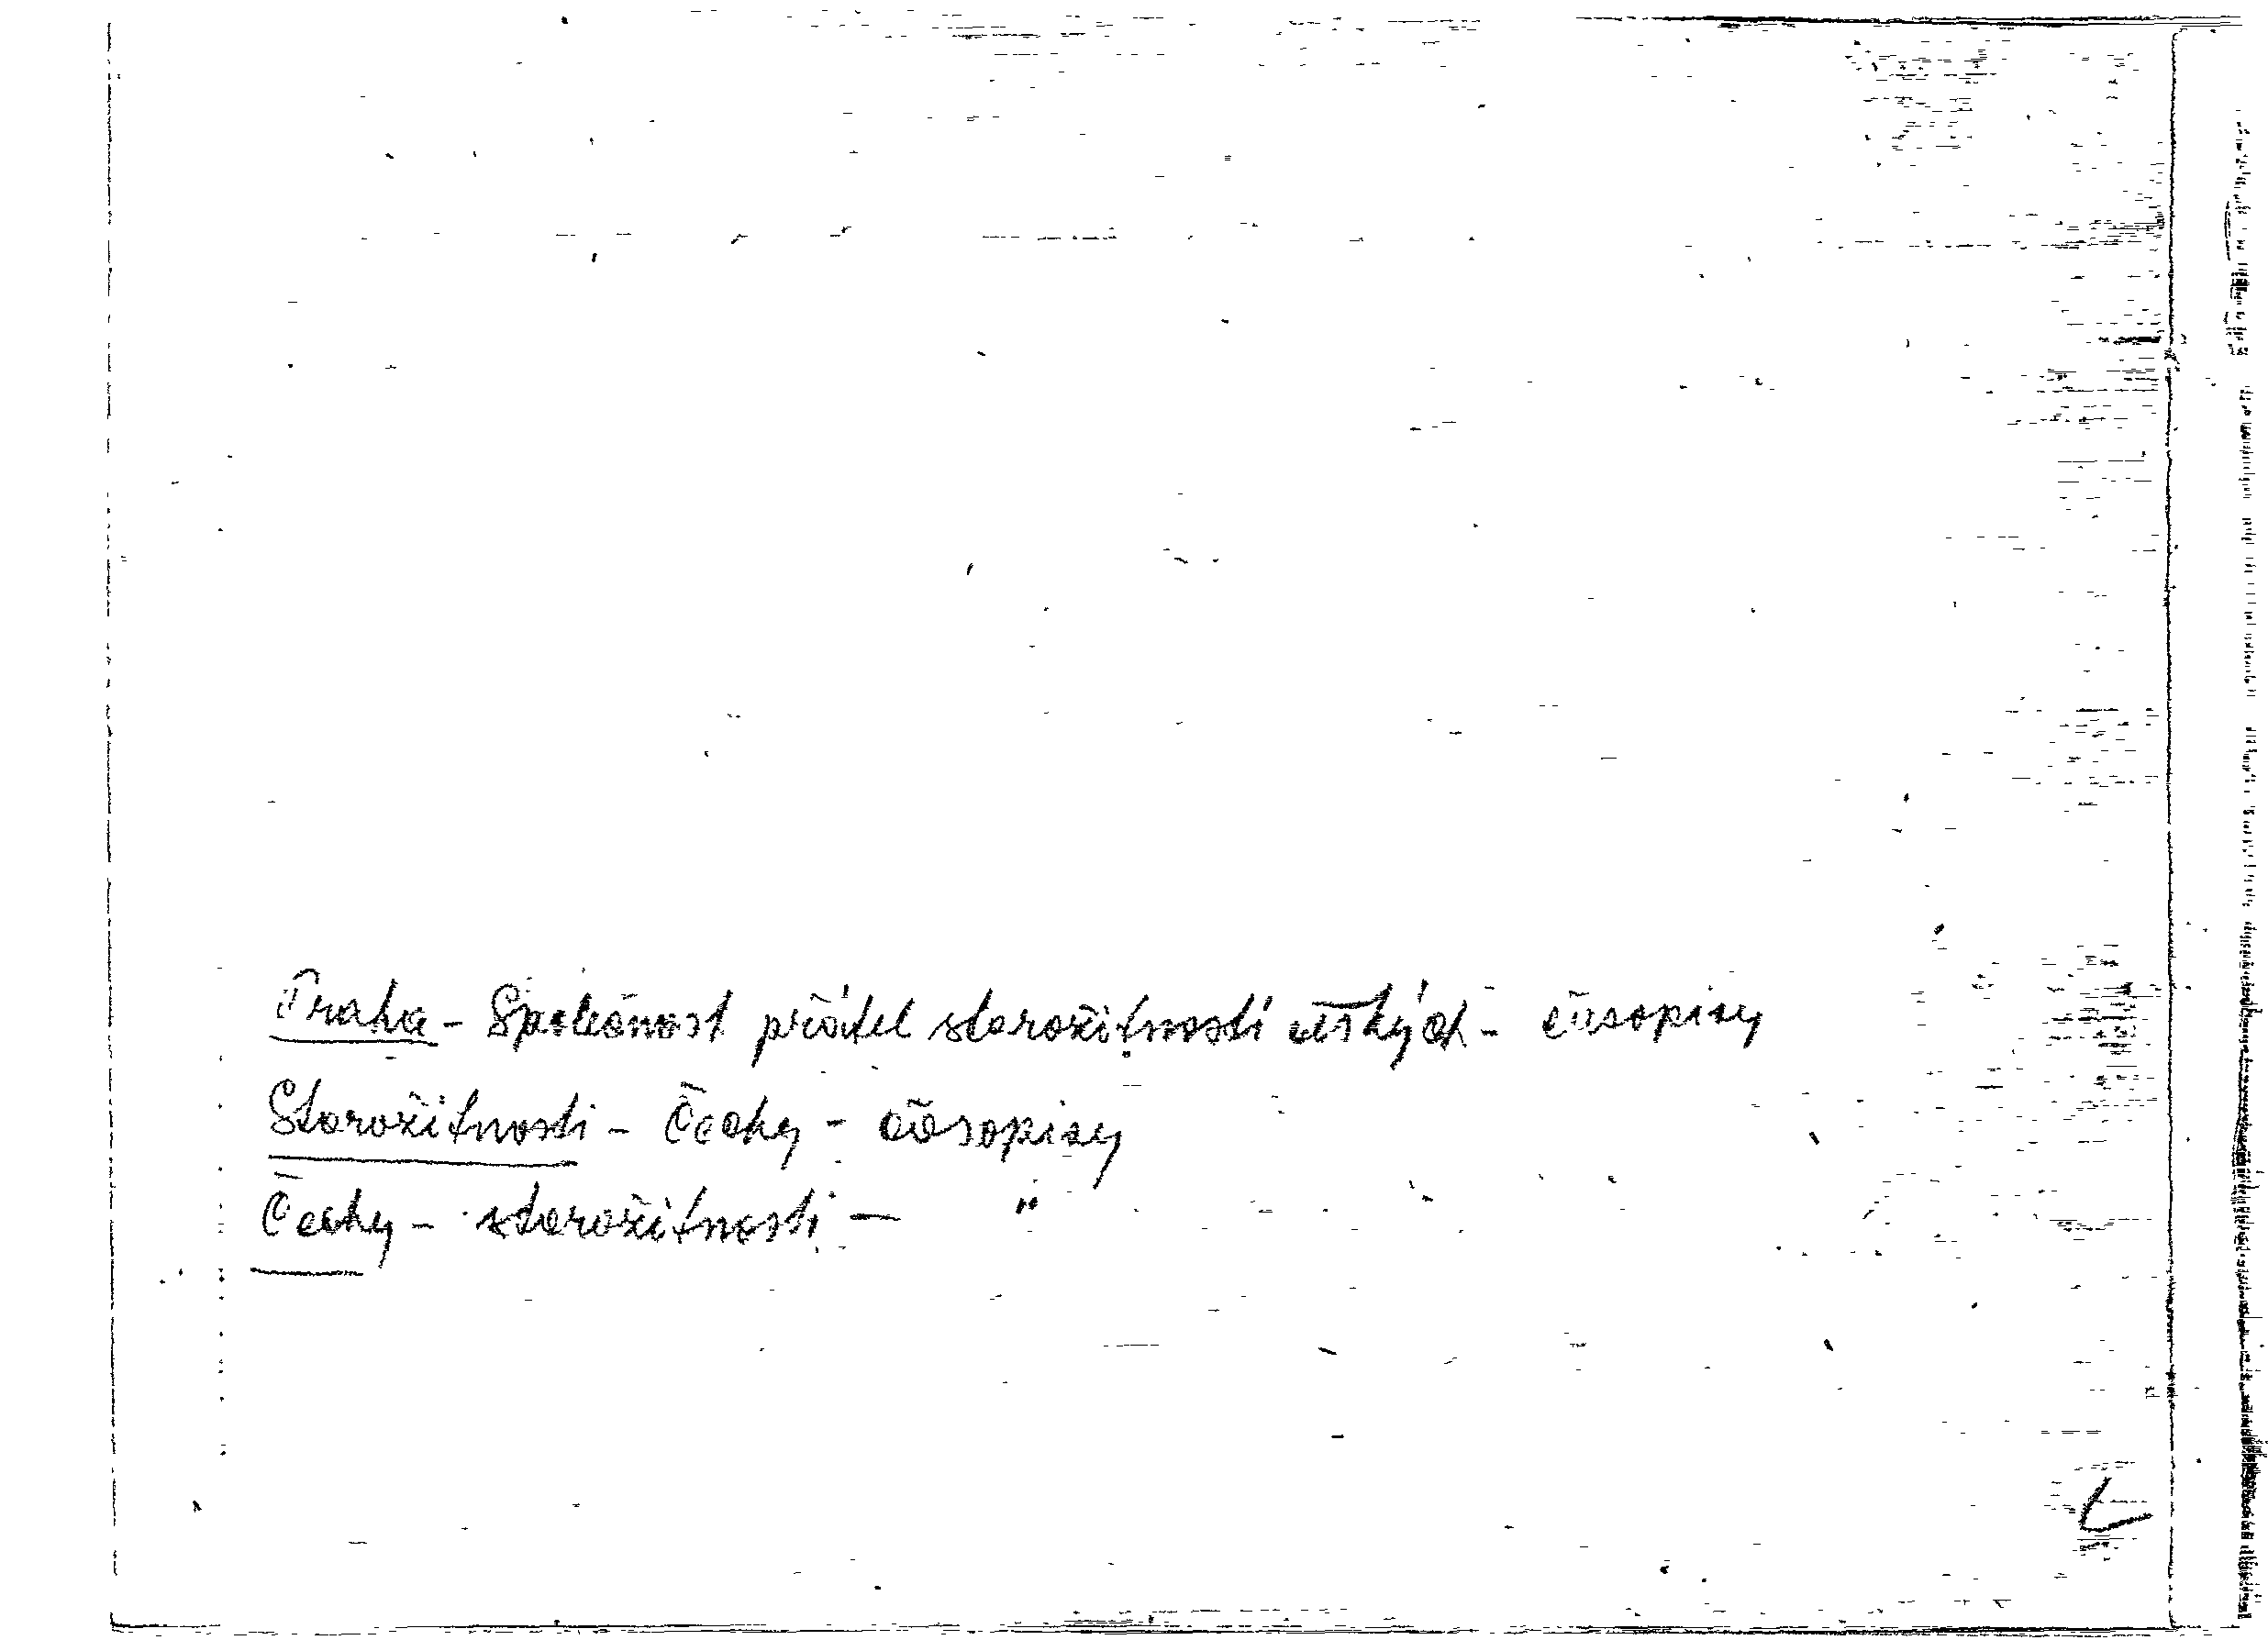 Praha - Společnost přátel starožitností českých - časopisy
Starožitnosti - Čechy - časopisy
Čechy - starožitnosti - "